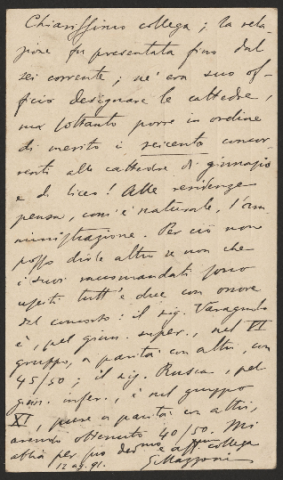 Chiarissimo collega; la rela-
zione fu presentata fino dal
sei corrente; nè era suo of-
ficio designare le cattedre,
ma soltanto porre in ordine
di merito i seicento concor-
renti alle cattedre di ginnasio
e di liceo! Alle residenze
pensa, com'è naturale, l'am-
ministrazione. Per ciò non
posso dirle altro se non che
i suoi raccomandati sono
usciti tutt'e due con onore
dal concorso: il sig. Varagnolo
è, pel ginn. super., nel VI
gruppo, a parità con altri, con
45/50; il sig. Rusca, pel
ginn. infer., è nel gruppo
XI, pure a parità con altri,
avendo ottenuto 40/50. Mi
abbia per suo dev.mo e aff.mo collega
12 ag. 91. G Mazzoni